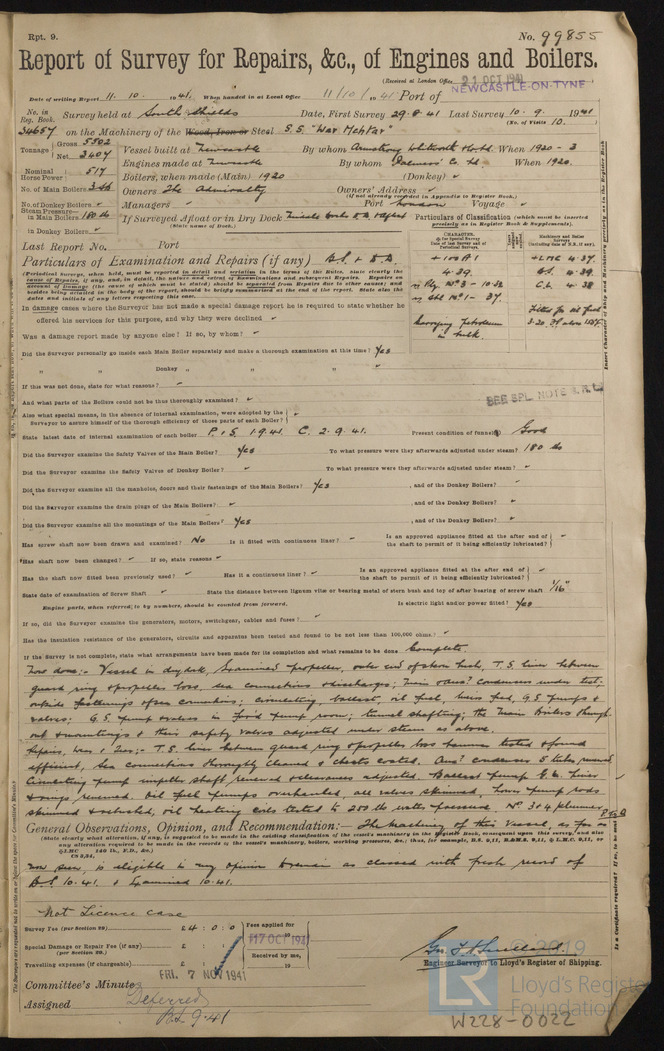 Rpt. 9.
No. 99855
Report of Survey for Repairs, &c., of Engines and Boilers.
(Received at London Office 21 OCT 1941
Date of writing Report 11. 10. 1941. When handed in at Local Office 11/10/1941 Port of NEWCASTLE-ON-TYNE
No. in Reg. Book. Survey held at South Shields Date, First Survey 29.8.41 Last Survey 10.9. 1941
(No. of Visits 10.
34657 on the Machinery of the Wood, Iron or Steel S.S. "War Mehtar"
Tonnage Gross 5502 Net 3407
Vessel built at Newcastle By whom Armstrong Whitworth & Co Ltd. When 1920 - 3
Engines made at Newcastle By whom Palmers' Co. Ld When 1920.
Nominal Horse Power 517
Boilers, when made (Main) 1920 (Donkey)
No. of Main Boilers 3 SB Owners The Admiralty Owners' Address
(If not already recorded in Appendix to Register Book.)
No. of Donkey Boilers Managers Port London Voyage
Steam Pressure— in Main Boilers 180 lb
in Donkey Boilers
If Surveyed Afloat or in Dry Dock
(State name of Dock.)
Particulars of Classification (which must be inserted precisely as in Register Book & Supplements).
Last Report No. Port
Particulars of Examination and Repairs (if any) B.S. & D.D.
+ 100 A1
4.39.
+ LMC 4.37.
BS. 4.39.
CL. 4.38
Fitted for oil fuel
3.20. FP above 150°F.
Carrying Petroleum in bulk.
In damage cases where the Surveyor has not made a special damage report he is required to state whether he
offered his services for this purpose, and why they were declined
Was a damage report made by anyone else? If so, by whom?
Did the Surveyor personally go inside each Main Boiler separately and make a thorough examination at this time? Yes
" " Donkey " " "
If this was not done, state for what reasons?
SEE SPL. NOTE
And what parts of the Boilers could not be thus thoroughly examined?
Also what special means, in the absence of internal examination, were adopted by the
Surveyor to assure himself of the thorough efficiency of those parts of each Boiler?
State latest date of internal examination of each boiler P. & S. 1.9.41. C. 2.9.41. Present condition of funnel(s) Good
Did the Surveyor examine the Safety Valves of the Main Boiler? Yes To what pressure were they afterwards adjusted under steam? 180 lb
Did the Surveyor examine the Safety Valves of Donkey Boiler? To what pressure were they afterwards adjusted under steam?
Did the Surveyor examine all the manholes, doors and their fastenings of the Main Boilers? Yes , and of the Donkey Boilers?
Did the Surveyor examine the drain plugs of the Main Boilers? , and of the Donkey Boilers?
Did the Surveyor examine all the mountings of the Main Boilers? Yes , and of the Donkey Boilers?
Has screw shaft now been drawn and examined? No Is it fitted with continuous liner? Is an approved appliance fitted at the after end of the shaft to permit of it being efficiently lubricated?
Has shaft now been changed? If so, state reasons
Has the shaft now fitted been previously used? Has it a continuous liner? Is an approved appliance fitted at the after end of the shaft to permit of it being efficiently lubricated?
State date of examination of Screw Shaft State the distance between lignum vitæ or bearing metal of stern bush and top of after bearing of screw shaft 1/16"
Engine parts, when referred to by numbers, should be counted from forward. Is electric light and/or power fitted? Yes
If so, did the Surveyor examine the generators, motors, switchgear, cables and fuses?
Has the insulation resistance of the generators, circuits and apparatus been tested and found to be not less than 100,000 ohms?
If the Survey is not complete, state what arrangements have been made for its completion and what remains to be done Complete.
Now done:- Vessel in drydock, Examined propeller, outer end of stern bush, T.S. liner between
guard ring & propeller boss, sea connections & discharges; Main & Aux? Condensers under test,
outside fastenings of sea connections; circulating, ballast, oil fuel, bilge, feed, G.S. pumps &
valves; G.S. pump & valves in ford pump room; tunnel shafting; the Main Boilers through-
out & mountings & their safety valves adjusted under steam as above.
Repairs, wear & tear;- T.S. liner between guard ring & propeller boss hammer tested & found
efficient, Sea connections thoroughly cleaned & chests coated. Aux? condenser 5 tubes renewed
Circulating pump impeller shaft renewed & clearances adjusted. Ballast pump G.M. liner
& rings renewed. Oil fuel pumps overhauled, all valves skimmed, worn pump rods
skimmed & rebushed, oil heating coils tested to 250 lbs water pressure. No 3 & 4 plummer
P.T.O
General Observations, Opinion, and Recommendation:— The machinery of this Vessel, as far as
now seen, is eligible in my opinion to remain as classed with fresh record of
B.S. 10.41. & Examined 10.41.
Not Licence case
Survey Fee (per Section 29) £4 : 0 : 0
Special Damage or Repair Fee (if any) £ : :
(per Section 29.)
Travelling expenses (if chargeable) £ : :
Fees applied for 17 OCT 1941
Received by me,
19
Engineer Surveyor to Lloyd's Register of Shipping.
Committee's Minute FRI. 7 NOV 1941
Assigned Deferred
BS 9.41
© 2019
LR
Lloyd's Register
Foundation
W228-0022